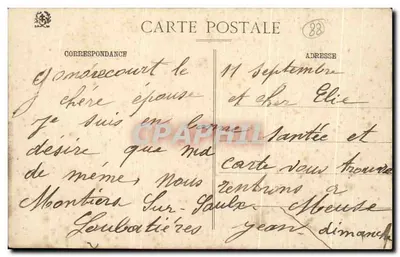 CARTE POSTALE
88
CORRESPONDANCE
ADRESSE
Gondrecourt le 11 septembre
chére épouse et cher Elie
je suis en bonne santée et
désire que ma carte vous trouve
de méme, nous rentrons à
Montiers Sur Saulx Meuse
Loubatiéres Jean dimanche